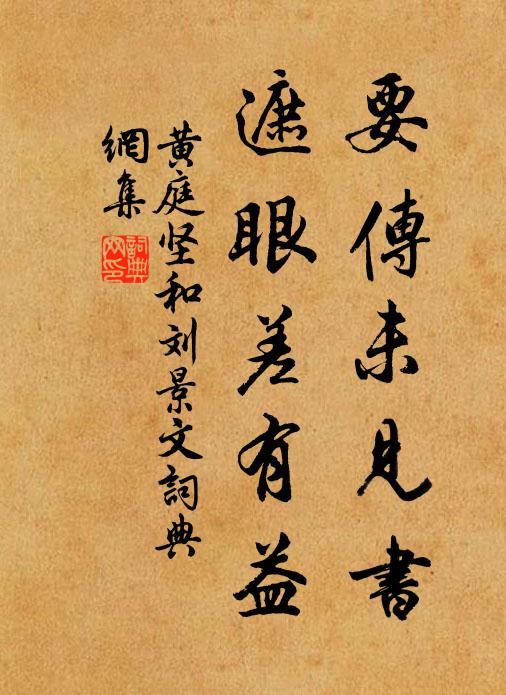 要傳未見書
遮眼差有益
黄庭坚和刘景文詞典
網集
詞典網印